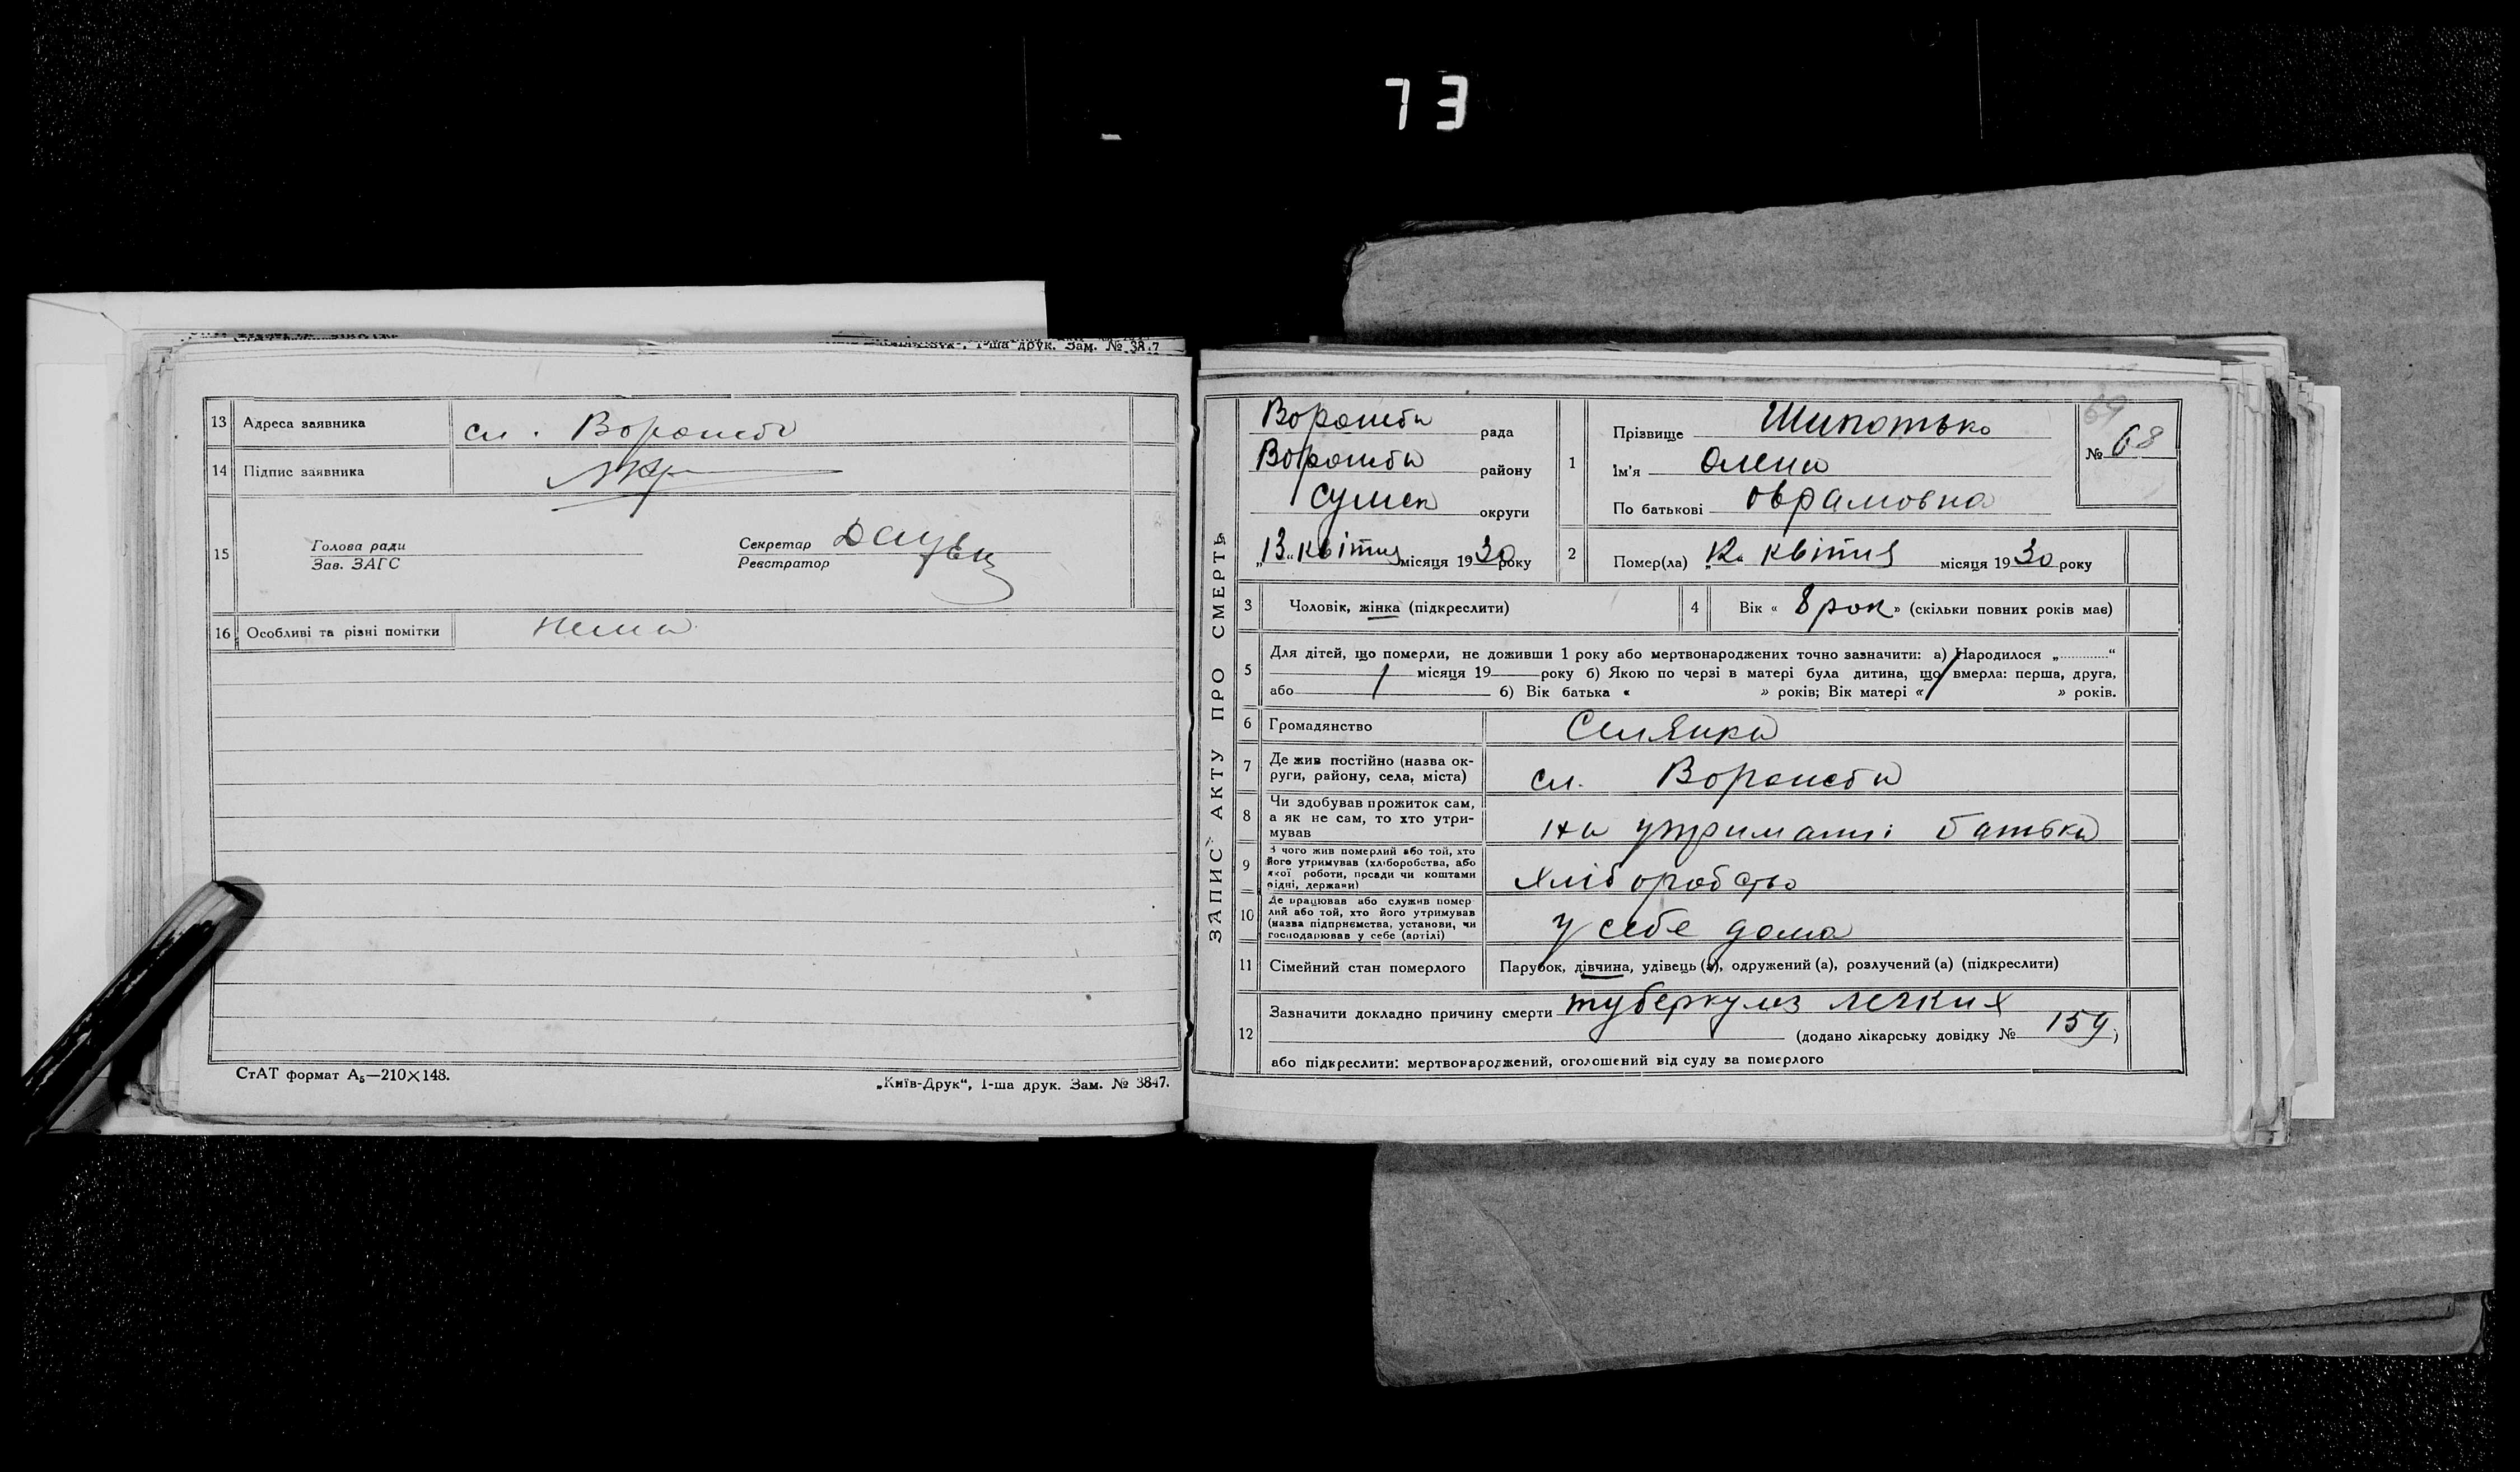 73
1-ша друк. Зам. № 38.7
13 Адреса заявника сл. Ворожба
14 Підпис заявника
15 Голова ради
Зав. ЗАГС
Секретар
Реєстратор
16 Особливі та різні помітки нема
СтАТ формат А₅—210×148.
„Київ-Друк“, 1-ша друк. Зам. № 3847.
ЗАПИС АКТУ ПРО СМЕРТЬ
Ворожба рада
Ворожба району
Сумск округи
„13“ квітня місяця 1930 року
1 Прізвище Шипотько
Ім'я Олена
По батькові Оврамовна
69
№ 68
2 Помер(ла) „12. квітня місяця 1930 року
3 Чоловік, жінка (підкреслити)
4 Вік « 8 рок » (скільки повних років має)
5 Для дітей, що померли, не доживши 1 року або мертвонароджених точно зазначити: а) Народилося „............“
місяця 19 року б) Якою по черзі в матері була дитина, що вмерла: перша, друга,
або б) Вік батька « » років; Вік матері « » років.
6 Громадянство Селянка
7 Де жив постійно (назва ок-
руги, району, села, міста) сл. Ворожба
8 Чи здобував прожиток сам,
а як не сам, то хто утри-
мував на утриманні батька
9 З чого жив померлий або той, хто
його утримував (хліборобства, або
якої роботи, посади чи коштами
рідні, держави) Хліборобство
10 Де працював або служив помер-
лий або той, хто його утримував
(назва підприємства, установи, чи
господарював у себе (артілі) у себе дома
11 Сімейний стан померлого Парубок, дівчина, удівець (а), одружений (а), розлучений (а) (підкреслити)
12 Зазначити докладно причину смерти туберкульз легких
(додано лікарську довідку № 159)
або підкреслити: мертвонароджений, оголошений від суду за померлого